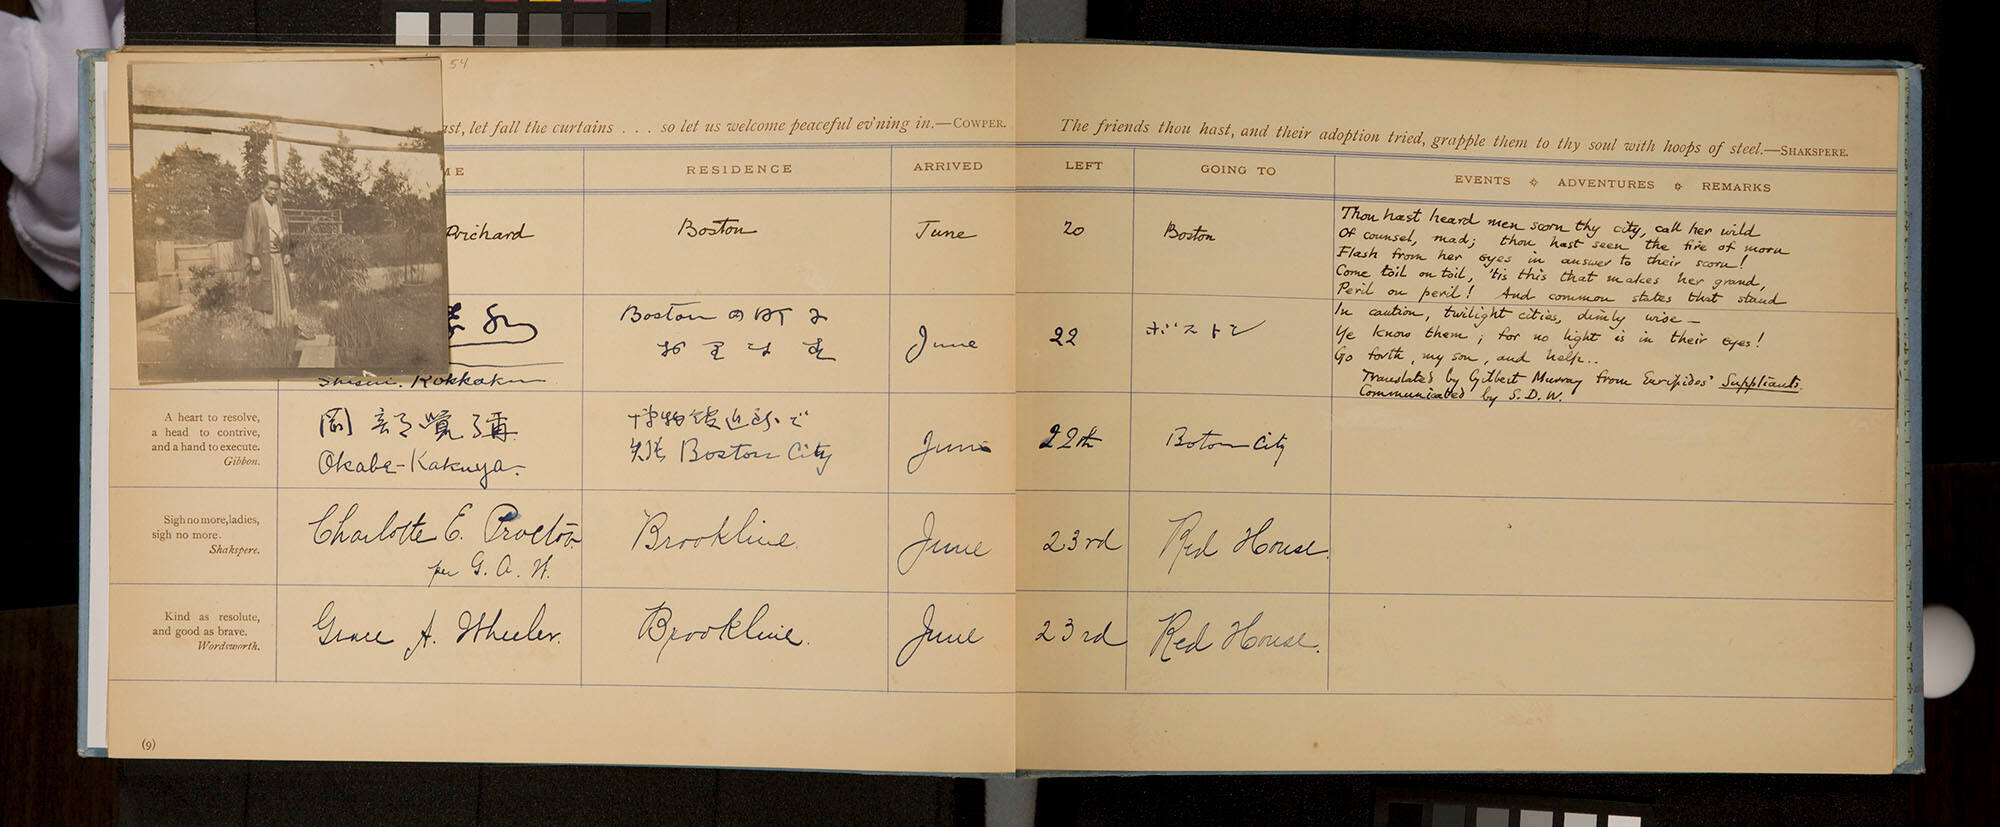 54
ast, let fall the curtains . . . so let us welcome peaceful ev'ning in.—COWPER.
ME
RESIDENCE
ARRIVED
Prichard
Boston
June
Shisui. Rokkaku
Boston の町 み
June
A heart to resolve,
a head to contrive,
and a hand to execute.
Gibbon.
岡部覚彌
Okabe-Kakuya.
博物館近所で
Boston City
June
Sigh no more, ladies,
sigh no more.
Shakspere.
Charlotte E. Proctor
per G. A. W.
Brookline.
June
Kind as resolute,
and good as brave.
Wordsworth.
Grace A. Wheeler.
Brookline.
June
(9)
The friends thou hast, and their adoption tried, grapple them to thy soul with hoops of steel.—SHAKSPERE.
LEFT
GOING TO
EVENTS ADVENTURES REMARKS
20
Boston
Thou hast heard men scorn thy city, call her wild
Of counsel, mad; thou hast seen the fire of morn
Flash from her eyes in answer to their scorn!
Come toil on toil, 'tis this that makes her grand,
Peril on peril! And common states that stand
In caution, twilight cities, dimly wise—
Ye know them; for no light is in their eyes!
Go forth, my son, and help..
Translated by Gilbert Murray from Euripides' Suppliants.
Communicated by S. D. W.
22
ボストン
22th
Boton City
23rd
Red House.
23rd
Red House.